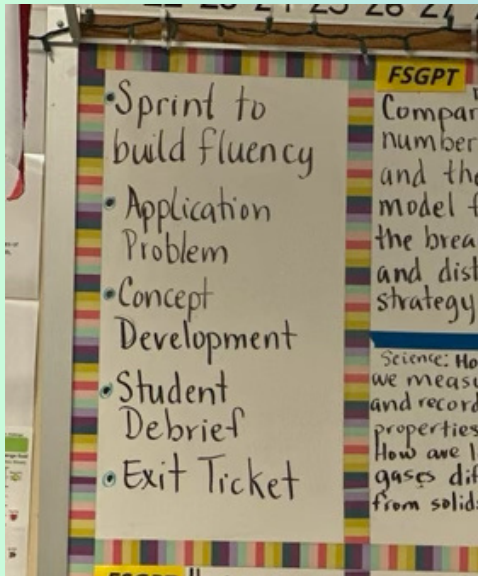 22 23 24 25 26 27
• Sprint to
build fluency
• Application
Problem
• Concept
Development
• Student
Debrief
• Exit Ticket
FSGPT
Compar
number
and the
model f
the brea
and dist
strategy
Science: Ho
we measu
and record
properties
How are l
gases dif
from solids
FSGPT